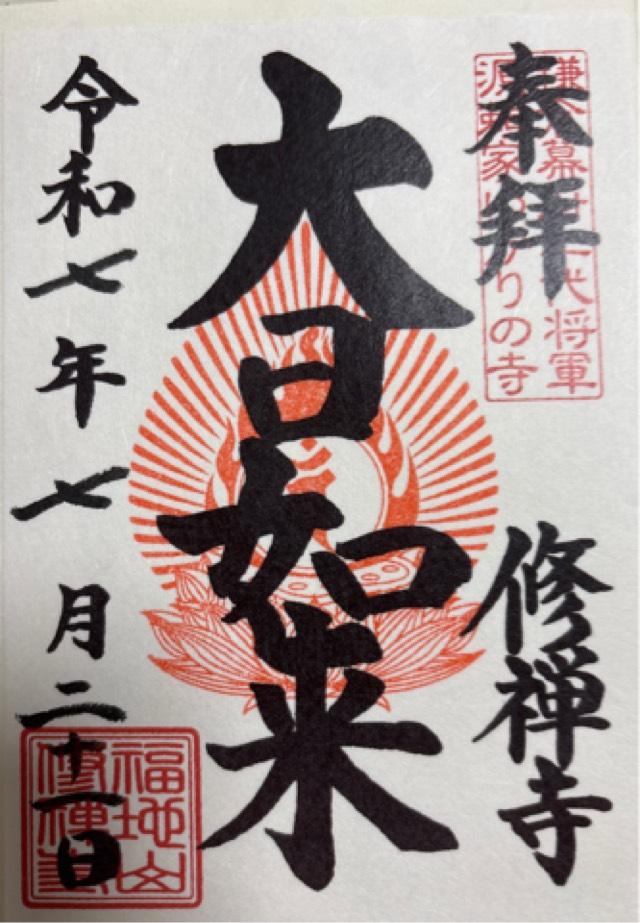 奉拝
鎌倉幕府二代将軍
源頼家ゆかりの寺
修禅寺
大日如来
令和七年七月二十一日
福地山
修禅寺